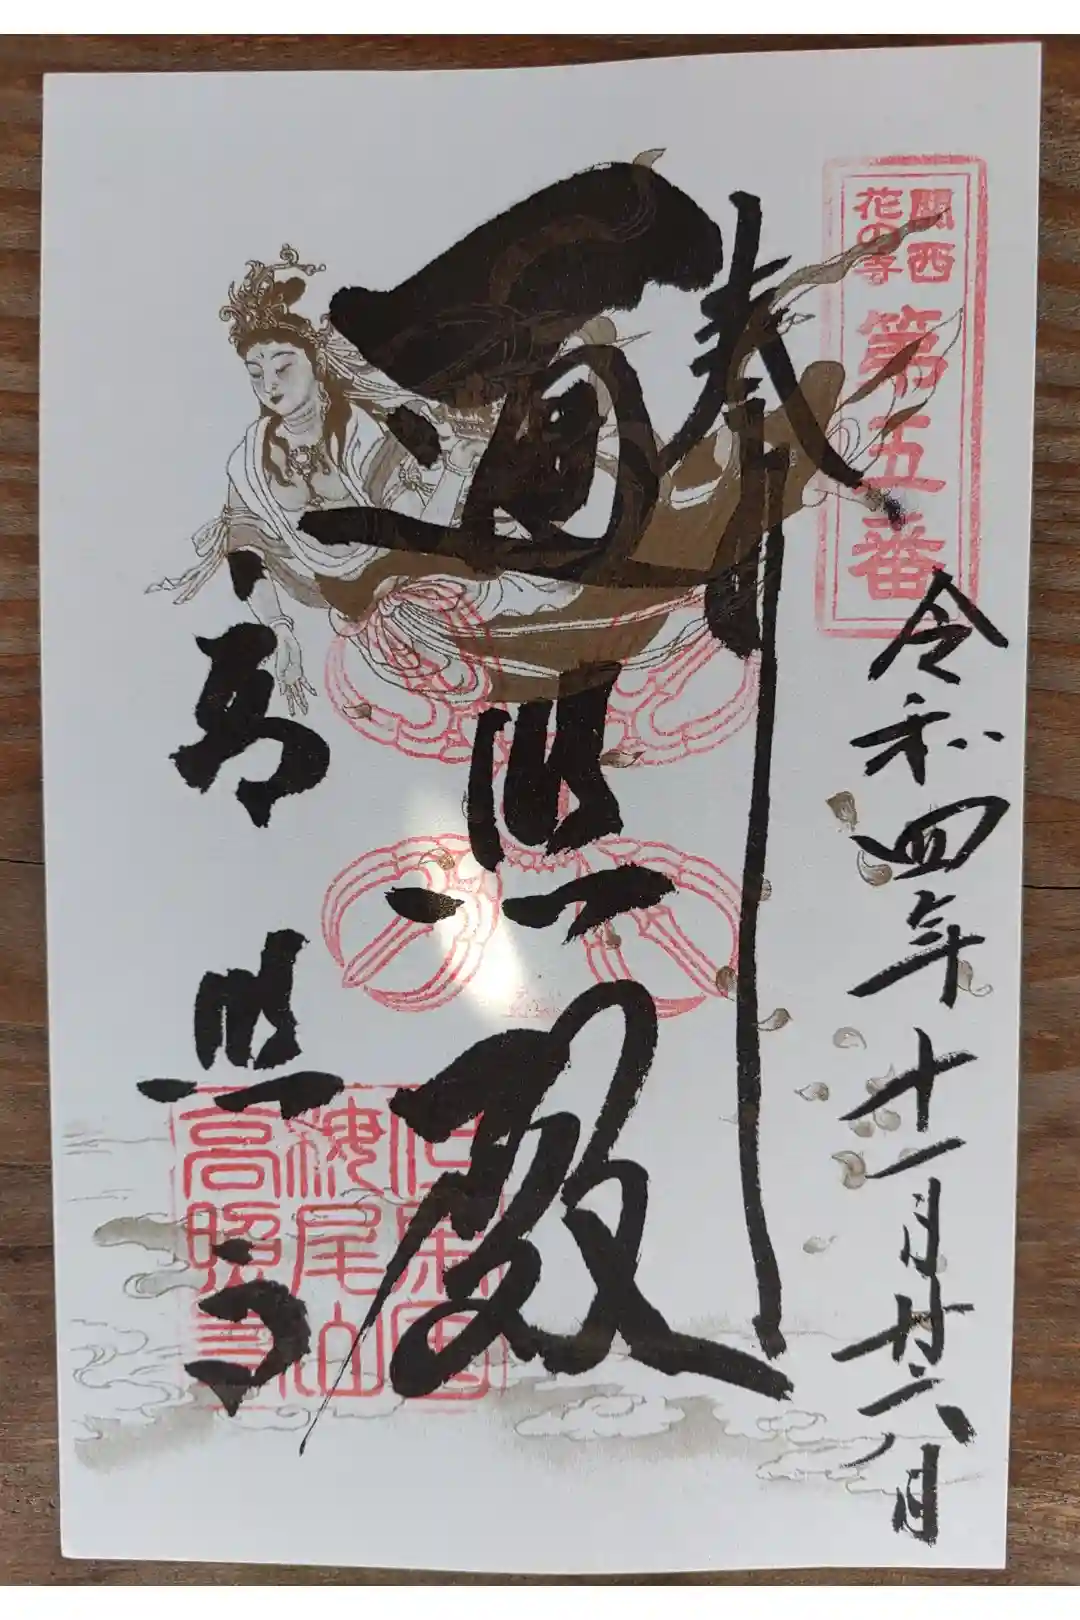 関西
花の寺
第五番
奉
令和四年十一月廿六日
遍照殿
高照寺
但馬国
尾山
高照寺